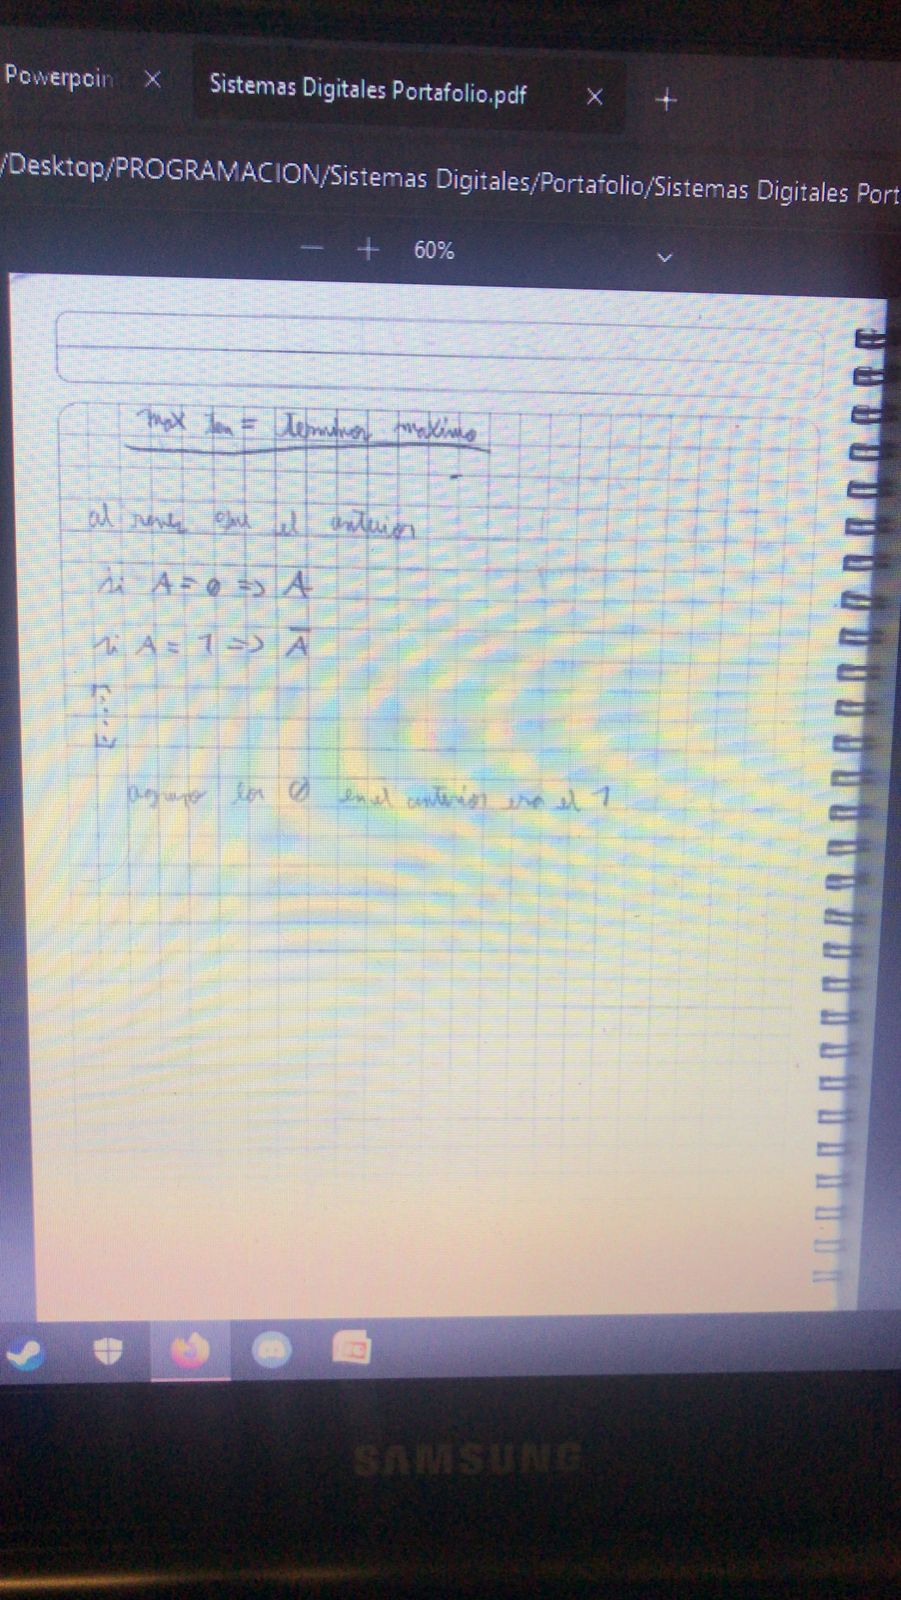 Powerpoin
Sistemas Digitales Portafolio.pdf
/Desktop/PROGRAMACION/Sistemas Digitales/Portafolio/Sistemas Digitales Port
60%
max ten = terminos maximo
al reves que el anterior
si A = 0 => A
si A = 1 => A̅
agrupo los 0 en el anterior era el 1
SAMSUNG